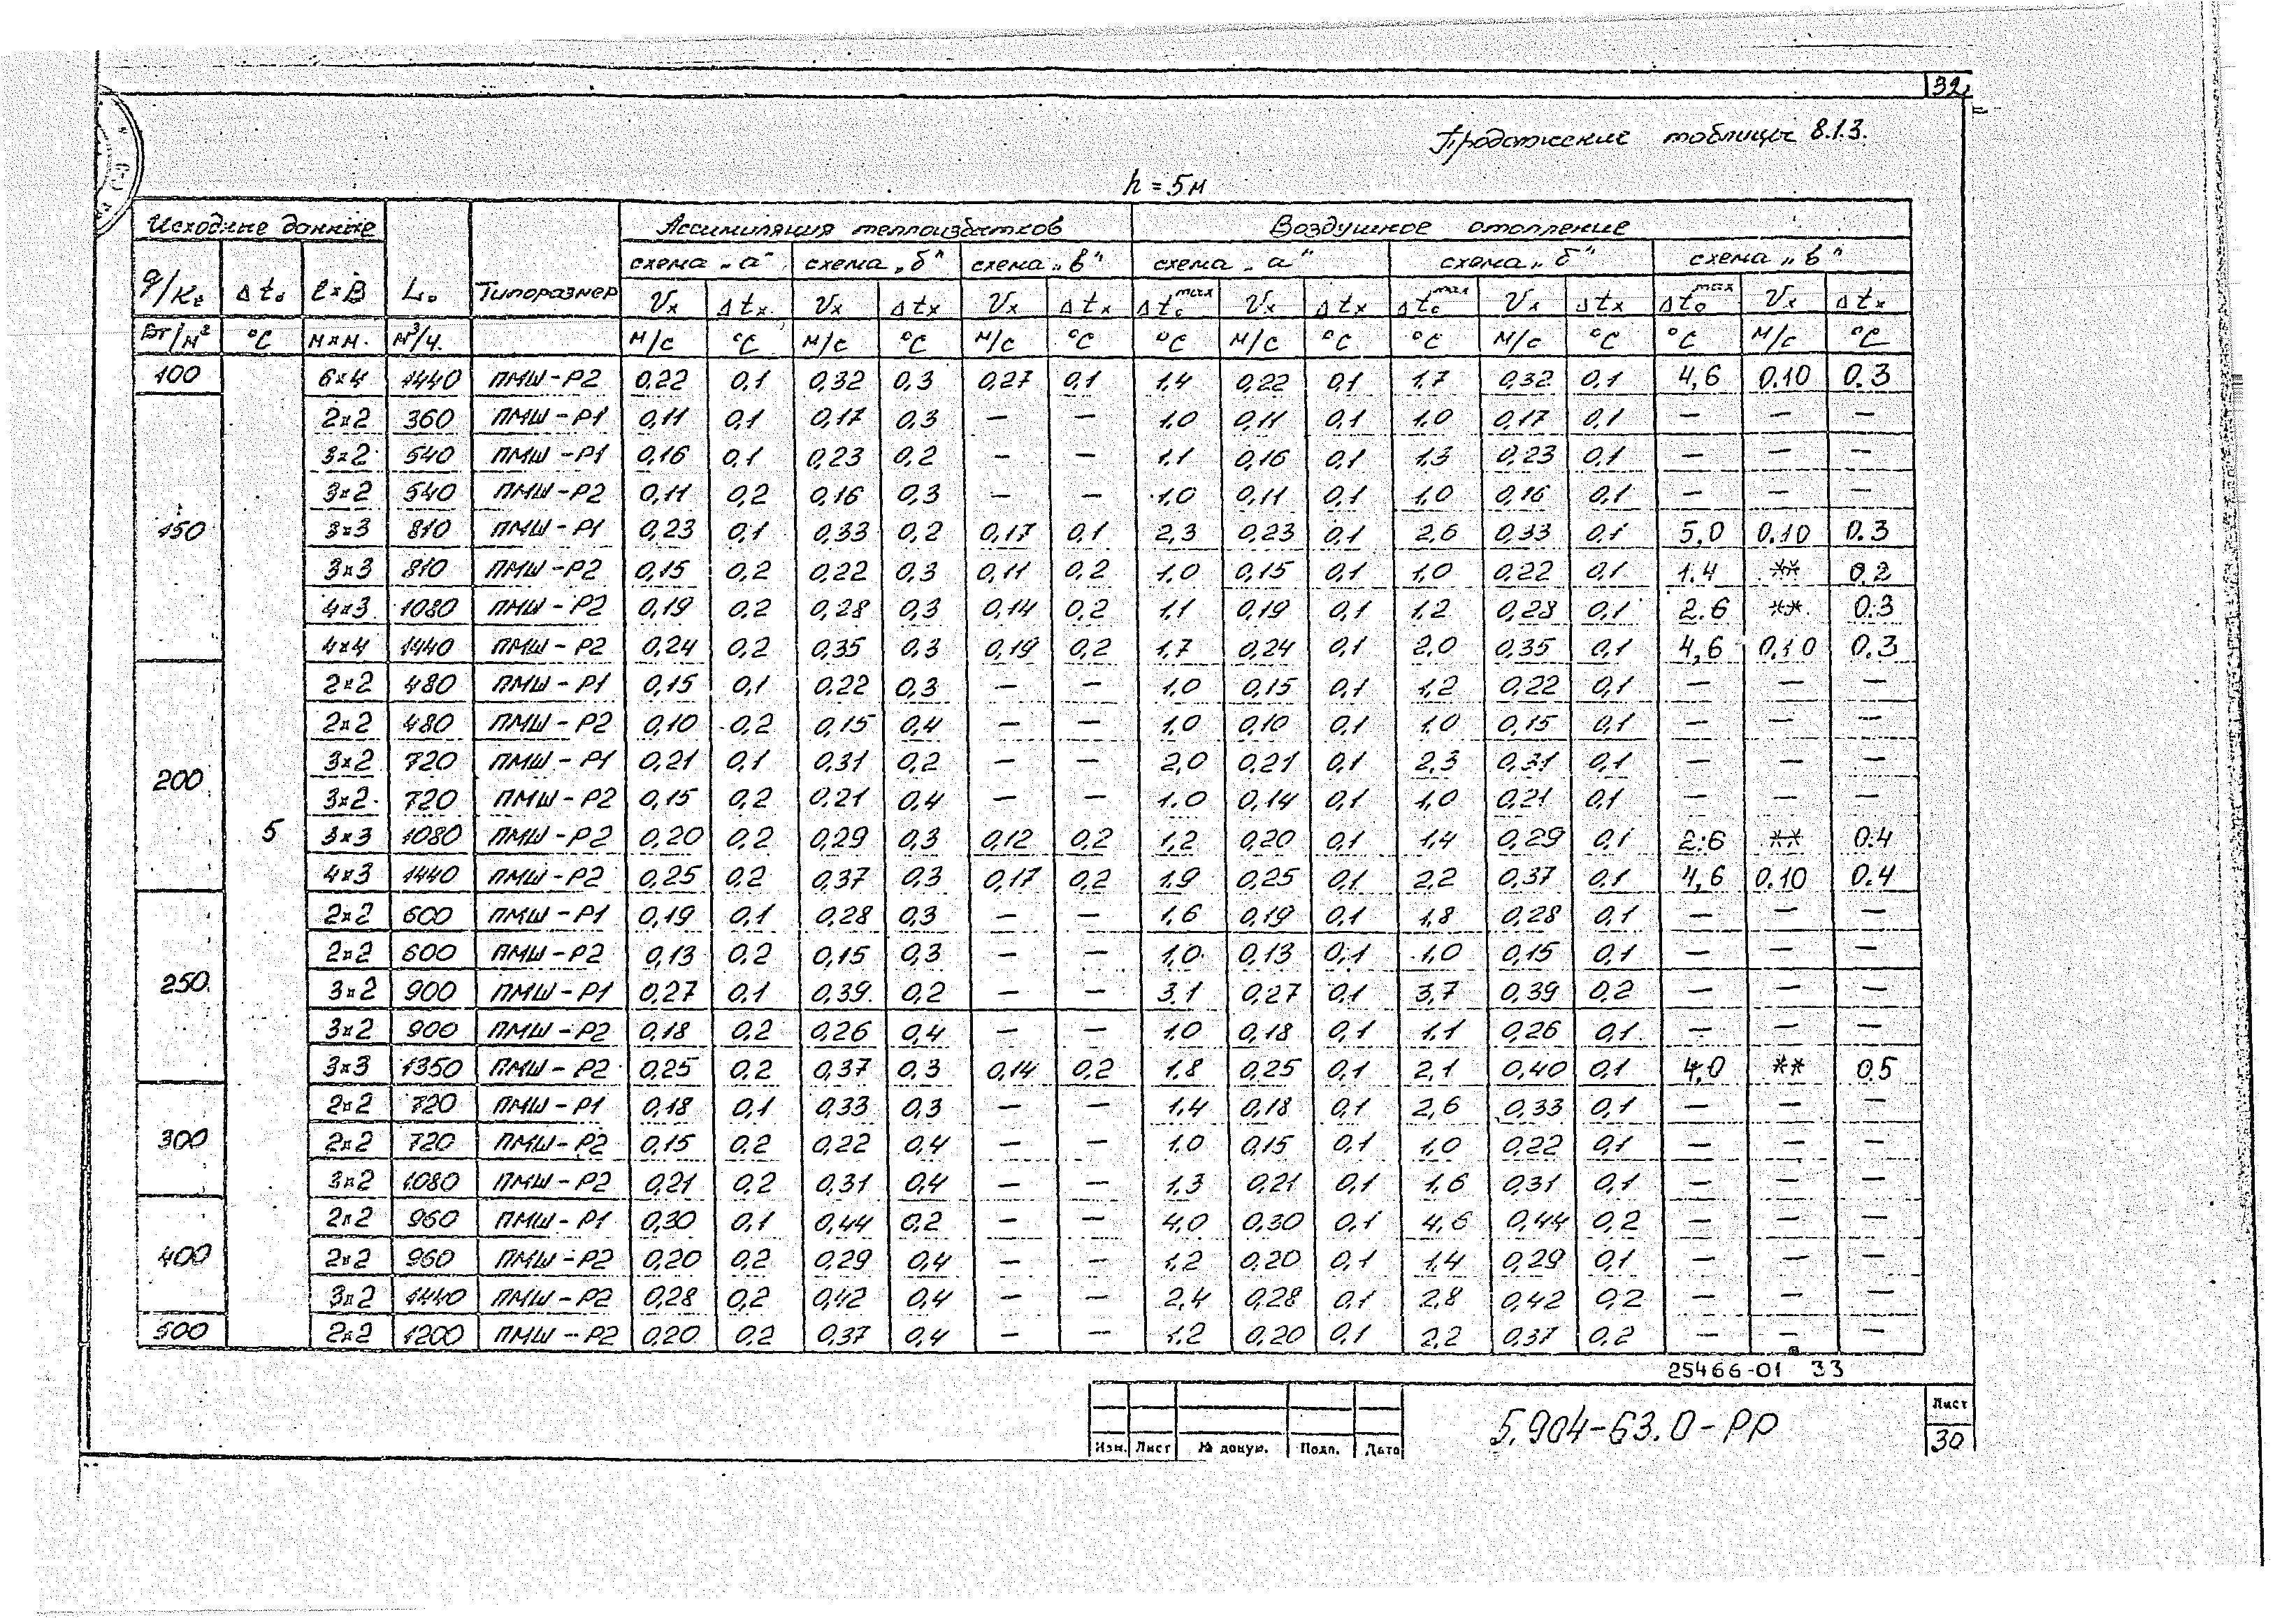 32
Продолжение таблицы 8.1.3.
h = 5м
Исходные данные L₀ Типоразмер Ассимиляция теплоизбытков Воздушное отопление
схема „а" схема „б" схема „в" схема „а" схема „б" схема „в"
q/Kг Δt₀ l×B Vx Δtx Vx Δtx Vx Δtx Δt₀max Vx Δtx Δt₀max Vx Δtx Δt₀max Vx Δtx
Вт/м² °С м×м. м³/ч. м/с °С м/с °С м/с °С °С м/с °С °С м/с °С °С м/с °С
100 6×4 1440 ПМШ-Р2 0,22 0,1 0,32 0,3 0,27 0,1 1,4 0,22 0,1 1,7 0,32 0,1 4,6 0.10 0.3
2×2 360 ПМШ-Р1 0,11 0,1 0,17 0,3 — — 1,0 0,11 0,1 1,0 0,17 0,1 — — —
3×2 540 ПМШ-Р1 0,16 0,1 0,23 0,2 — — 1,1 0,16 0,1 1,3 0,23 0,1 — — —
3×2 540 ПМШ-Р2 0,11 0,2 0,16 0,3 — — 1,0 0,11 0,1 1,0 0,16 0,1 — — —
150 3×3 810 ПМШ-Р1 0,23 0,1 0,33 0,2 0,17 0,1 2,3 0,23 0,1 2,6 0,33 0,1 5,0 0.10 0.3
3×3 810 ПМШ-Р2 0,15 0,2 0,22 0,3 0,11 0,2 1,0 0,15 0,1 1,0 0,22 0,1 1.4 ** 0.2
4×3 1080 ПМШ-Р2 0,19 0,2 0,28 0,3 0,14 0,2 1,1 0,19 0,1 1,2 0,28 0,1 2.6 ** 0.3
4×4 1440 ПМШ-Р2 0,24 0,2 0,35 0,3 0,19 0,2 1,7 0,24 0,1 2,0 0,35 0,1 4,6 0.10 0.3
2×2 480 ПМШ-Р1 0,15 0,1 0,22 0,3 — — 1,0 0,15 0,1 1,2 0,22 0,1 — — —
2×2 480 ПМШ-Р2 0,10 0,2 0,15 0,4 — — 1,0 0,10 0,1 1,0 0,15 0,1 — — —
200 3×2 720 ПМШ-Р1 0,21 0,1 0,31 0,2 — — 2,0 0,21 0,1 2,3 0,31 0,1 — — —
3×2 720 ПМШ-Р2 0,15 0,2 0,21 0,4 — — 1,0 0,14 0,1 1,0 0,21 0,1 — — —
5 3×3 1080 ПМШ-Р2 0,20 0,2 0,29 0,3 0,12 0,2 1,2 0,20 0,1 1,4 0,29 0,1 2.6 ** 0.4
4×3 1440 ПМШ-Р2 0,25 0,2 0,37 0,3 0,17 0,2 1,9 0,25 0,1 2,2 0,37 0,1 4,6 0.10 0.4
2×2 600 ПМШ-Р1 0,19 0,1 0,28 0,3 — — 1,6 0,19 0,1 1,8 0,28 0,1 — — —
2×2 600 ПМШ-Р2 0,13 0,2 0,15 0,3 — — 1,0 0,13 0,1 1,0 0,15 0,1 — — —
250 3×2 900 ПМШ-Р1 0,27 0,1 0,39 0,2 — — 3,1 0,27 0,1 3,7 0,39 0,2 — — —
3×2 900 ПМШ-Р2 0,18 0,2 0,26 0,4 — — 1,0 0,18 0,1 1,1 0,26 0,1 — — —
3×3 1350 ПМШ-Р2 0,25 0,2 0,37 0,3 0,14 0,2 1,8 0,25 0,1 2,1 0,40 0,1 4,0 ** 0.5
2×2 720 ПМШ-Р1 0,18 0,1 0,33 0,3 — — 1,4 0,18 0,1 2,6 0,33 0,1 — — —
300 2×2 720 ПМШ-Р2 0,15 0,2 0,22 0,4 — — 1,0 0,15 0,1 1,0 0,22 0,1 — — —
3×2 1080 ПМШ-Р2 0,21 0,2 0,31 0,4 — — 1,3 0,21 0,1 1,6 0,31 0,1 — — —
2×2 960 ПМШ-Р1 0,30 0,1 0,44 0,2 — — 4,0 0,30 0,1 4,6 0,44 0,2 — — —
400 2×2 960 ПМШ-Р2 0,20 0,2 0,29 0,4 — — 1,2 0,20 0,1 1,4 0,29 0,1 — — —
3×2 1440 ПМШ-Р2 0,28 0,2 0,42 0,4 — — 2,4 0,28 0,1 2,8 0,42 0,2 — — —
500 2×2 1200 ПМШ-Р2 0,20 0,2 0,37 0,4 — — 1,2 0,20 0,1 2,2 0,37 0,2 — — —
25466-01 33
Изм. Лист № докум. Подп. Дата
5.904-63.0-РР
Лист
30